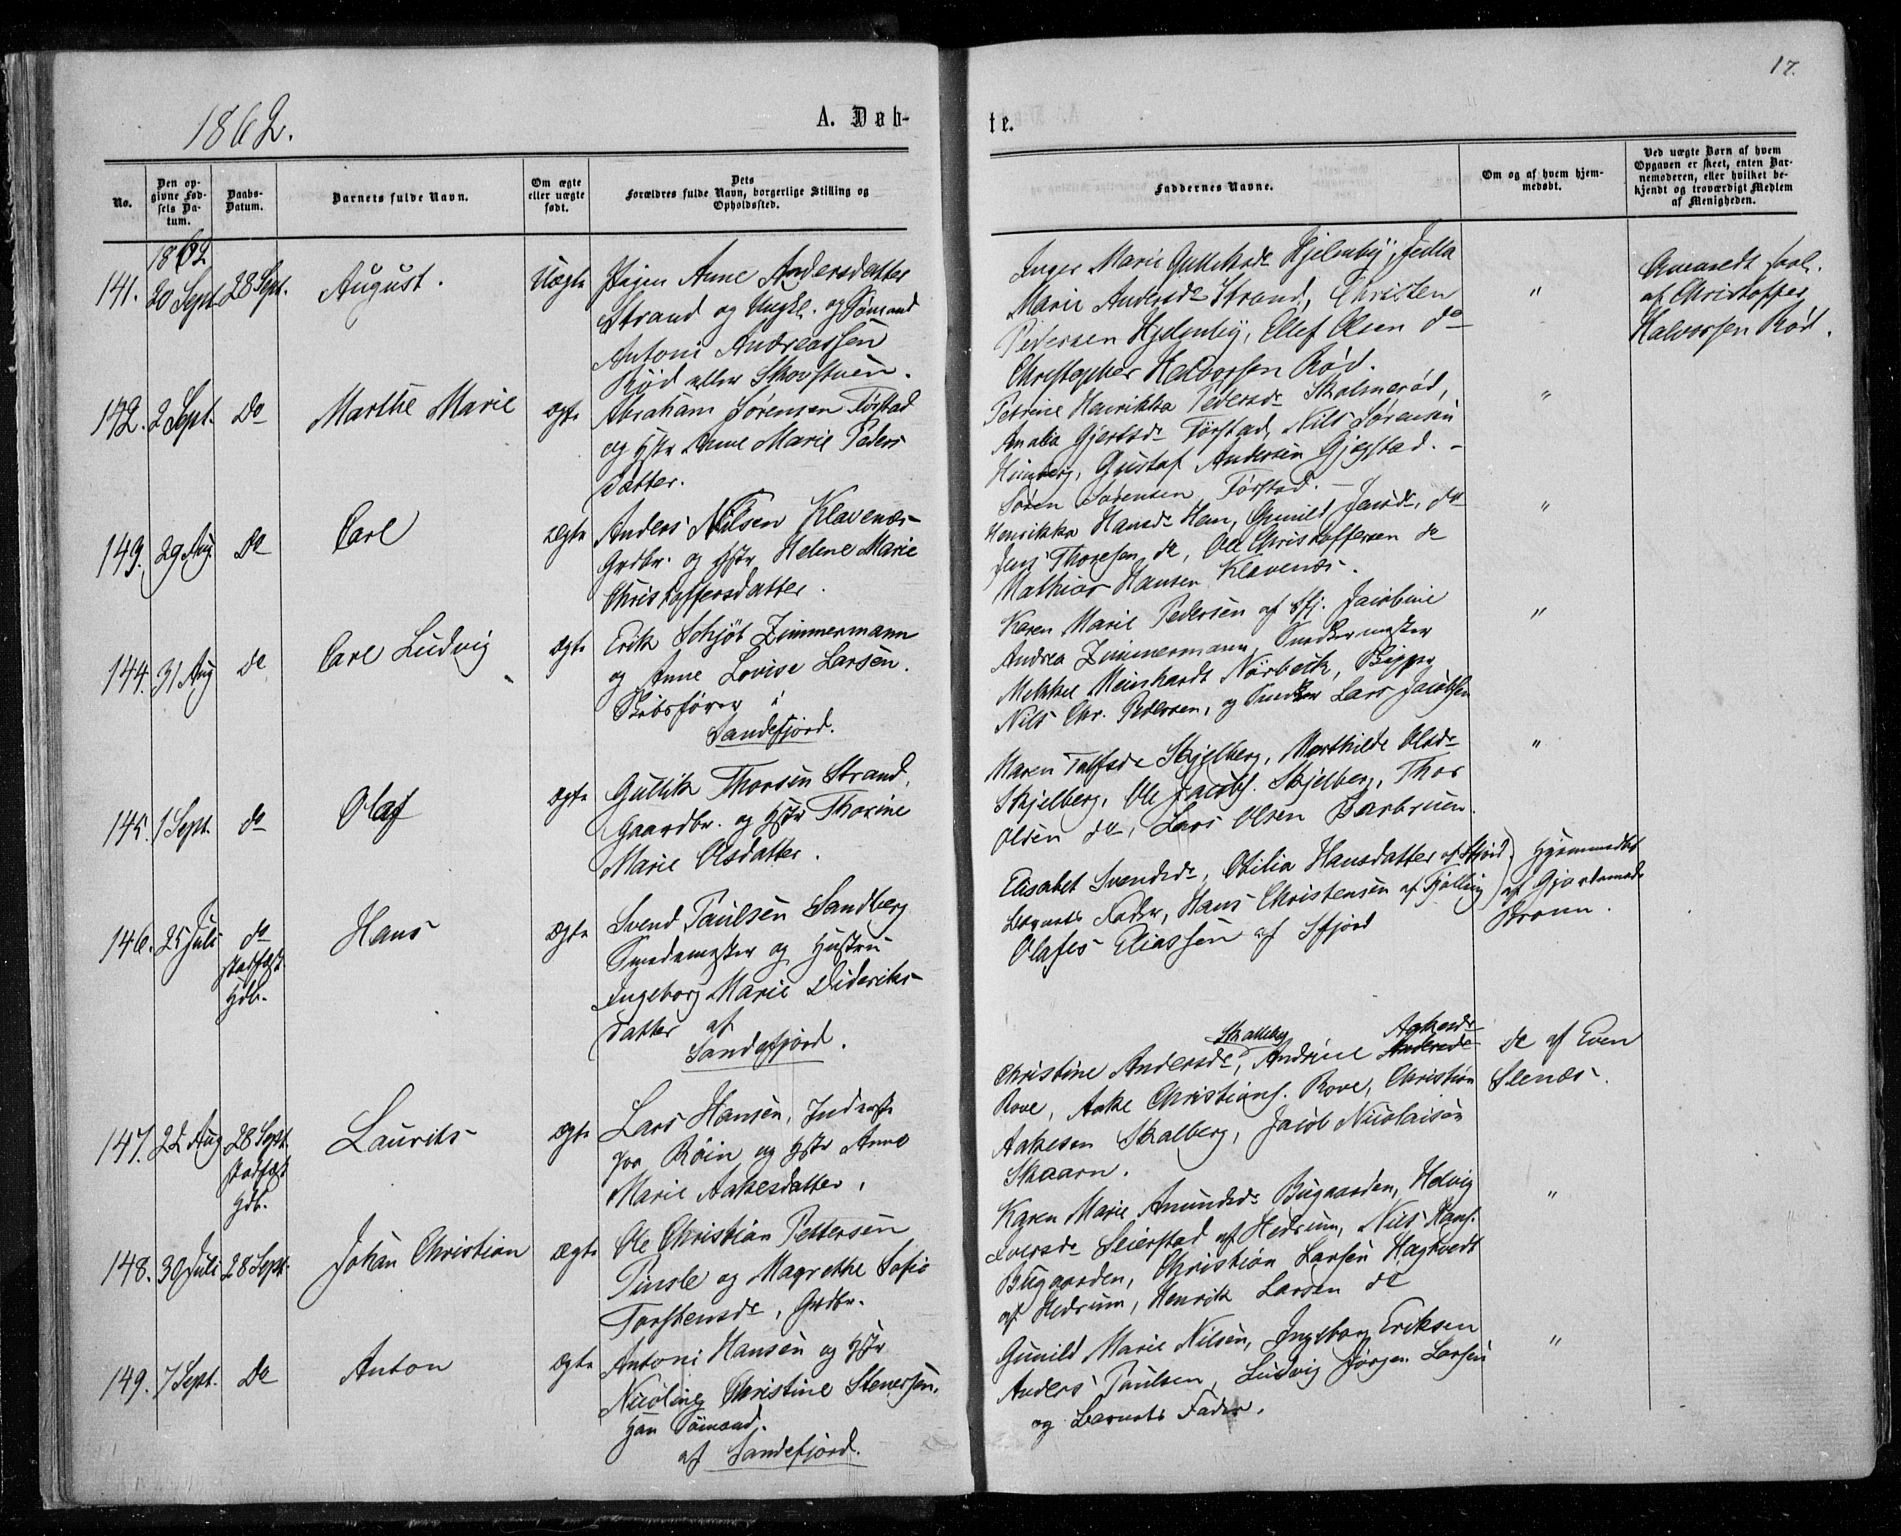 17.
1862.
A. Døb-
te.
No.
Den op-
givne Fød-
sels Da-
tum.
Daabs-
Datum.
Barnets fulde Navn.
Om ægte
eller uægte
født.
Dets
Forældres fulde Navn, borgerlige Stilling og
Opholdssted.
Faddernes Navne.
Om og af hvem hjem-
medøbt.
Ved uægte Børn af hvem
Opgaven er skeet, enten Bar-
nemoderen, eller hvilket be-
kjendt og troværdigt Medlem
af Menigheden.
1862
141. 20 Sept. 28 Sept. August. Uægte
Pigen Anne Andersdatter
Strand og Ungkl. og Sømand
Antoni Andreassen
Rød eller
Inger Marie Hjelmby,
Marie Andersdr Strand, Christen
Pedersen Hjelmby, Ellef Olsen do
Christopher Halvorsen Rød.
"
af Christoffer
Halvorsen Rød.
142. 2 Sept. Do Marthe Marie ægte
Abraham Sørensen Førstad
og Hstr Anne Marie Peders-
datter.
Petrine Henrikka Pedersdr Skolmerød,
Amalia Gjertsdr Førstad, Nils Sørensen
Himberg, Gustaf Andersen Gjegstad. -
Søren Sørensen Førstad. -
"
149. 29 Aug. Do Carl ægte
Anders Nilsen Klavenæs
Grdbr. og Hstr Helene Marie
Christoffersdatter.
Henrikka Hansdr Hem, Gunild Jensdr, do
Jens Thoresen do, Ole Christoffersen do
Mathias Hansen Klavenæs.
"
144. 31 Aug Do Carl Ludvig ægte
Erik Schjøt Zimmermann
og Anne Lovise Larsen.
Skibsfører i
Sandefjord.
Karen Marie Pedersen af Sfj. Jacobine
Andrea Zimmermann, Snedkermester
Mekkel Meinhardt Nörbeck, Skipper
Nils Chr. Pedersen, og Snedker Lars Jacobsen
"
145. 1 Sept. do Olaf ægte
Gullik Thorsen Strand,
Gaardbr. og Hstr Thorine
Marie Olsdatter.
Maren Skjelberg, Mathilde Olsdr
Skjelberg, Ole Jacobs. Skjelberg, Thor
Olsen do, Lars Olsen
"
146. 25 Juli do
stadfæst
Hdb. Hans ægte
Svend Paulsen Sandberg
Smedemester og Hustru
Ingeborg Marie Dideriks-
datter af
Sandefjord.
Elisabet Svendsdr, Otilia Hansdatter af Sfjord,
Barnets Fader, Hans Christensen af Tjølling
Olafes Eliassen af Sfjord
Hjemmedøbt
af Gjordemoder
Bronn.
147. 22 Aug 28 Sept.
stadfæst
Hdb. Laurits ægte
Lars Hansen, Inderste
paa Röin og Hstr Anne
Marie Aakesdatter.
Skalleberg Aakesdr
Christine Andersdr, Andrine Andersdr
Rove, Aake Christians. Rove, Christian
Aakesen Skalberg, Jacob Nicolaisen
Skaarn.
do af Even
Stenæs.
148. 30 Juli 28 Sept. Johan Christian ægte
Ole Christian Pettersen
Pinsle og Magrethe Sofie
Torstensdr, Grdbr.
Karen Marie Amundsdr Bugaarden, Helvig
Iversdr Seierstad af Hedrum, Nils Hans.
Bugaarden, Christian Larsen Hagtvedt
af Hedrum, Henrik Larsen do
"
149. 7 Sept. Do Anton ægte
Antoni Hansen og Hstr
Nicoline Christine Stenersen.
Han Sømand.
af Sandefjord.
Gunild Marie Nilsen, Ingeborg Eriksen
Anders Paulsen, Ludvig Jørgen Larsen
og Barnets Fader.
"